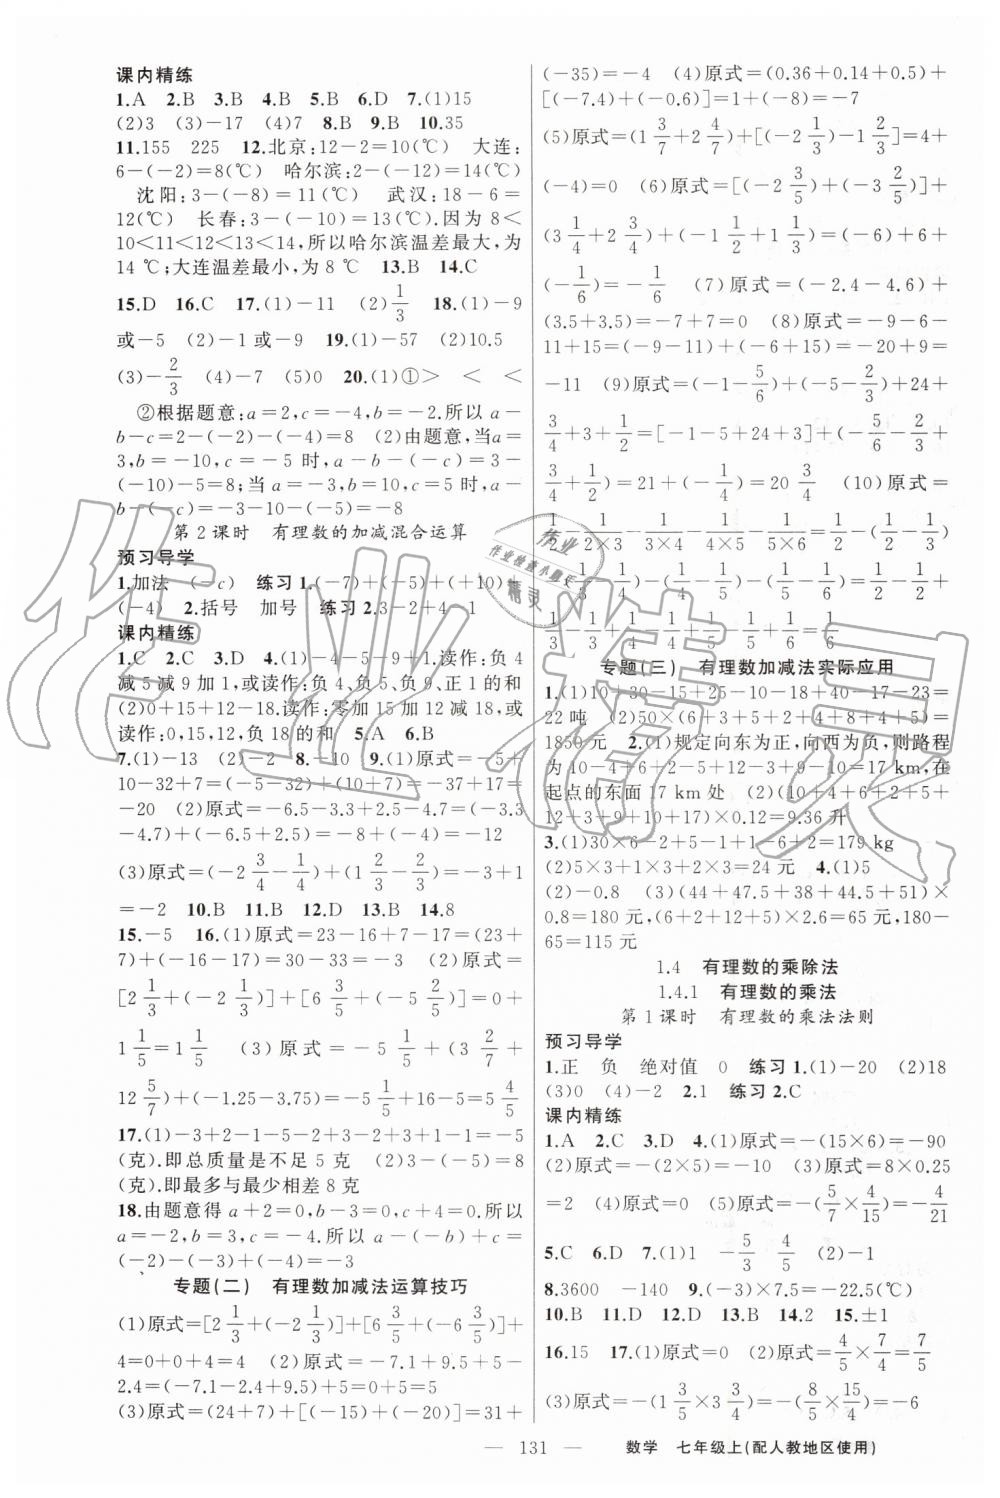 课内精练
1.A 2.B 3.B 4.B 5.B 6.D 7.(1)15
(2)3 (3)-17 (4)7 8.B 9.B 10.35
11.155 225 12.北京:12-2=10(℃) 大连:
6-(-2)=8(℃) 哈尔滨:2-(-12)=14(℃)
沈阳:3-(-8)=11(℃) 武汉:18-6=
12(℃) 长春:3-(-10)=13(℃).因为8<
10<11<12<13<14,所以哈尔滨温差最大,为
14 ℃;大连温差最小,为8 ℃ 13.B 14.C
15.D 16.C 17.(1)-11 (2)1/3 18.(1)-9
或-5 (2)-1或-9 19.(1)-57 (2)10.5
(3)-2/3 (4)-7 (5)0 20.(1)①> < <
②根据题意:a=2,c=-4,b=-2.所以a-
b-c=2-(-2)-(-4)=8 (2)由题意,当a=
3,b=-10,c=-5时,a-b-(-c)=3-
(-10)-5=8;当a=-3,b=10,c=5时,a-
b-(-c)=-3-10-(-5)=-8
第2课时 有理数的加减混合运算
预习导学
1.加法 (-c) 练习1.(-7)+(-5)+(+10)+
(-4) 2.括号 加号 练习2.3-2+4-1
课内精练
1.C 2.C 3.D 4.(1)-4-5-9+1,读作:负4
减5减9加1,或读作:负4、负5、负9、正1的和
(2)0+15+12-18,读作:零加15加12减18,或
读作:0,15,12,负18的和 5.A 6.B
7.(1)-13 (2)-2 8.-10 9.(1)原式=-5+
10-32+7=(-5-32)+(10+7)=-37+17=
-20 (2)原式=-6.5-3.3+2.5-4.7=(-3.3
-4.7)+(-6.5+2.5)=-8+(-4)=-12
(3)原式=(-2 3/4-1/4)+(1/3+2/3)=-3+1
=-2 10.B 11.B 12.D 13.B 14.8
15.-5 16.(1)原式=23-16+7-17=(23+
7)+(-16-17)=30-33=-3 (2)原式=
[2 1/3+(-2 1/3)]+[6 3/5+(-5 2/5)]=0+
1 1/5=1 1/5 (3)原式=-5 1/2+(3 2/7+
12 5/7)+(-1.25-3.75)=-5 1/2+16-5=5 1/2
17.(1)-3+2-1-5-2+3-2+3+1-1=-5
(克).即总质量是不足5克 (2)3-(-5)=8
(克).即最多与最少相差8克
18.由题意得a+2=0,b-3=0,c+4=0,所以
a=-2,b=3,c=-4.所以a-(-b)+c=
(-2)-(-3)+(-4)=-3
专题(二) 有理数加减法运算技巧
(1)原式=[2 1/3+(-2 1/3)]+[6 3/5+(-6 3/5)]+
4=0+0+4=4 (2)原式=(-7.1+9.5)+5-
2.4=(-7.1-2.4+9.5)+5=0+5=5
(3)原式=(24+7)+[(-15)+(-20)]=31+
(-35)=-4 (4)原式=(0.36+0.14+0.5)+
[(-7.4)+(-0.6)]=1+(-8)=-7
(5)原式=(1 3/7+2 4/7)+[(-2 1/3)-1 2/3]=4+
(-4)=0 (6)原式=[(-2 3/5)+(-3 2/5)]+
(3 1/4+2 3/4)+(-1 1/2+1 1/3)=(-6)+6+
(-1/6)=-1/6 (7)原式=(-2.4-4.6)+
(3.5+3.5)=-7+7=0 (8)原式=-9-6-
11+15=(-9-11)+(-6+15)=-20+9=
-11 (9)原式=(-1-5/6)+(-5-2/3)+24+
3/4+3+1/2=[-1-5+24+3]+(-5/6-2/3+
3/4+1/2)=21+(-1/4)=20 3/4 (10)原式=
1/2-1/2×3-1/3×4-1/4×5-1/5×6=1/2-(1/2-
1/3)-(1/3-1/4)-(1/4-1/5)-(1/5-1/6)=1/2-1/2+
1/3-1/3+1/4-1/4+1/5-1/5+1/6=1/6
专题(三) 有理数加减法实际应用
1.(1)10+30-15+25-10-18+40-17-23=
22吨 (2)50×(6+3+5+2+4+8+4+5)=
1850元 2.(1)规定向东为正,向西为负,则路程
为10-4+6-2+5-12-3+9-10=17 km,在
起点的东面17 km处 (2)(10+4+6+2+5+
12+3+9+10+17)×0.12=9.36升
3.(1)30×6-2+5-1+1-6+2=179 kg
(2)5×3+1×3+2×3=24元 4.(1)5
(2)-0.8 (3)(44+47.5+38+44.5+51)×
0.8=180元,(6+2+12+5)×2.6=65元,180-
65=115元
1.4 有理数的乘除法
1.4.1 有理数的乘法
第1课时 有理数的乘法法则
预习导学
1.正 负 绝对值 0 练习1.(1)-20 (2)18
(3)0 (4)-2 2.1 练习2.C
课内精练
1.A 2.C 3.D 4.(1)原式=-(15×6)=-90
(2)原式=-(2×5)=-10 (3)原式=8×0.25
=2 (4)原式=0 (5)原式=-(5/7×4/15)=-4/21
5.C 6.D 7.(1)1 -5/3 4/5 (2)-1
8.3600 -140 9.(-3)×7.5=-22.5(℃)
10.B 11.D 12.D 13.B 14.2 15.±1
16.15 17.(1)原式=0 (2)原式=4/5×7/4=7/5
(3)原式=-(1 3/5×3 3/4)=-(8/5×15/4)=-6
— 131 — 数学 七年级上(配人教地区使用)
作业精灵